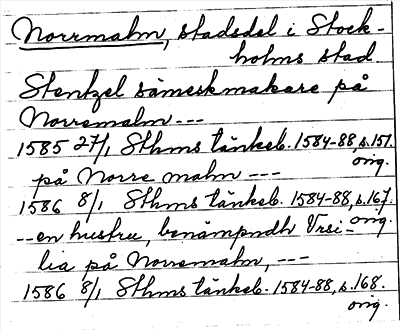 Norrmalm, stadsdel i Stock-
holms stad.
Stentzel sämeskmakare på
Norremalm ---
1585 27/1 Sthms tänkeb. 1584-88, s.151.
orig.
på Norre malm ---
1586 8/1 Sthms tänkeb. 1584-88, s.167.
orig.
--en hustru, benämpndh Vrsi-
lia på Norremalm, ---
1586 8/1 Sthms tänkeb. 1584-88, s.168.
orig.